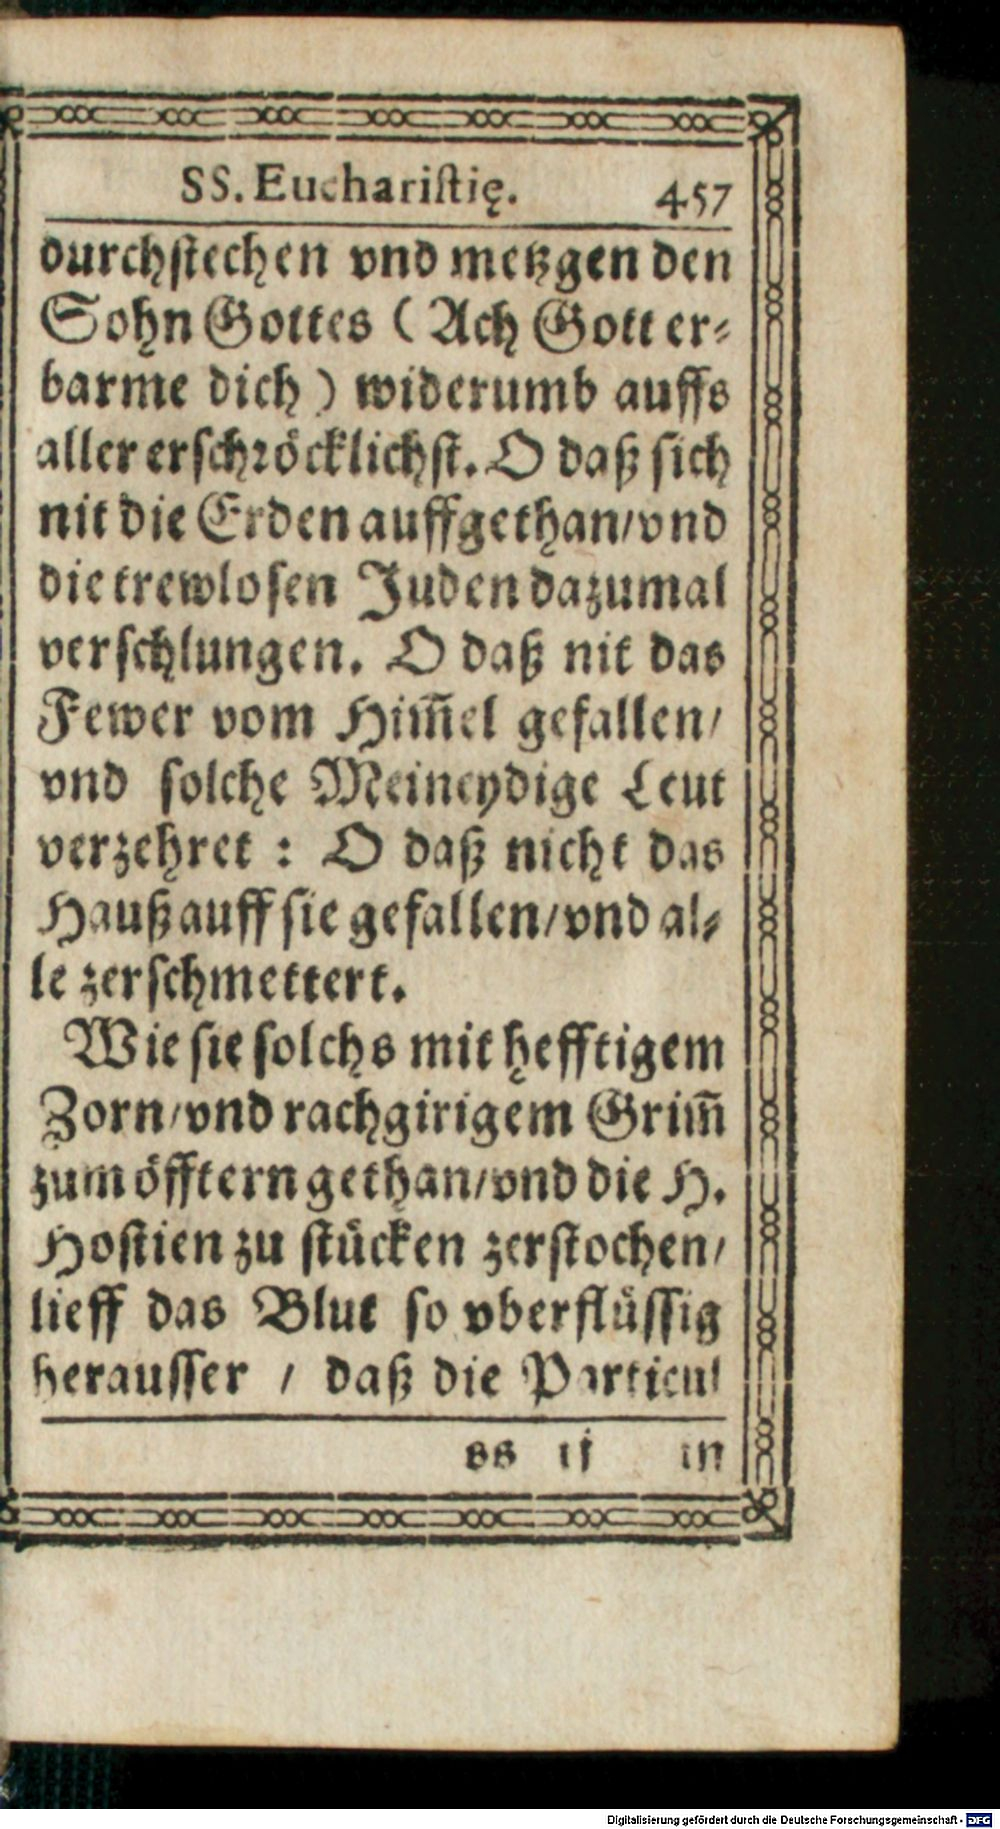 SS. Euchariſtię. 457
durchſtechen vnd metzgen den
Sohn Gottes (Ach Gott er⸗
barme dich) widerumb auffs
aller erſchröcklichſt. O daß ſich
nit die Erden auffgethan/vnd
die trewloſen Juden dazumal
verſchlungen. O daß nit das
Fewer vom Him̃el gefallen/
vnd ſolche Meineydige Leut
verzehret : O daß nicht das
Hauß auff ſie gefallen/vnd al⸗
le zerſchmettert.
Wie ſie ſolchs mit hefftigem
Zorn/vnd rachgirigem Grim̃
zum öfftern gethan/vnd die H.
Hoſtien zu ſtücken zerſtochen/
lieff das Blut ſo vberflüſſig
herauſſer / daß die Particul
ss ij in
Digitalisierung gefördert durch die Deutsche Forschungsgemeinschaft - DFG